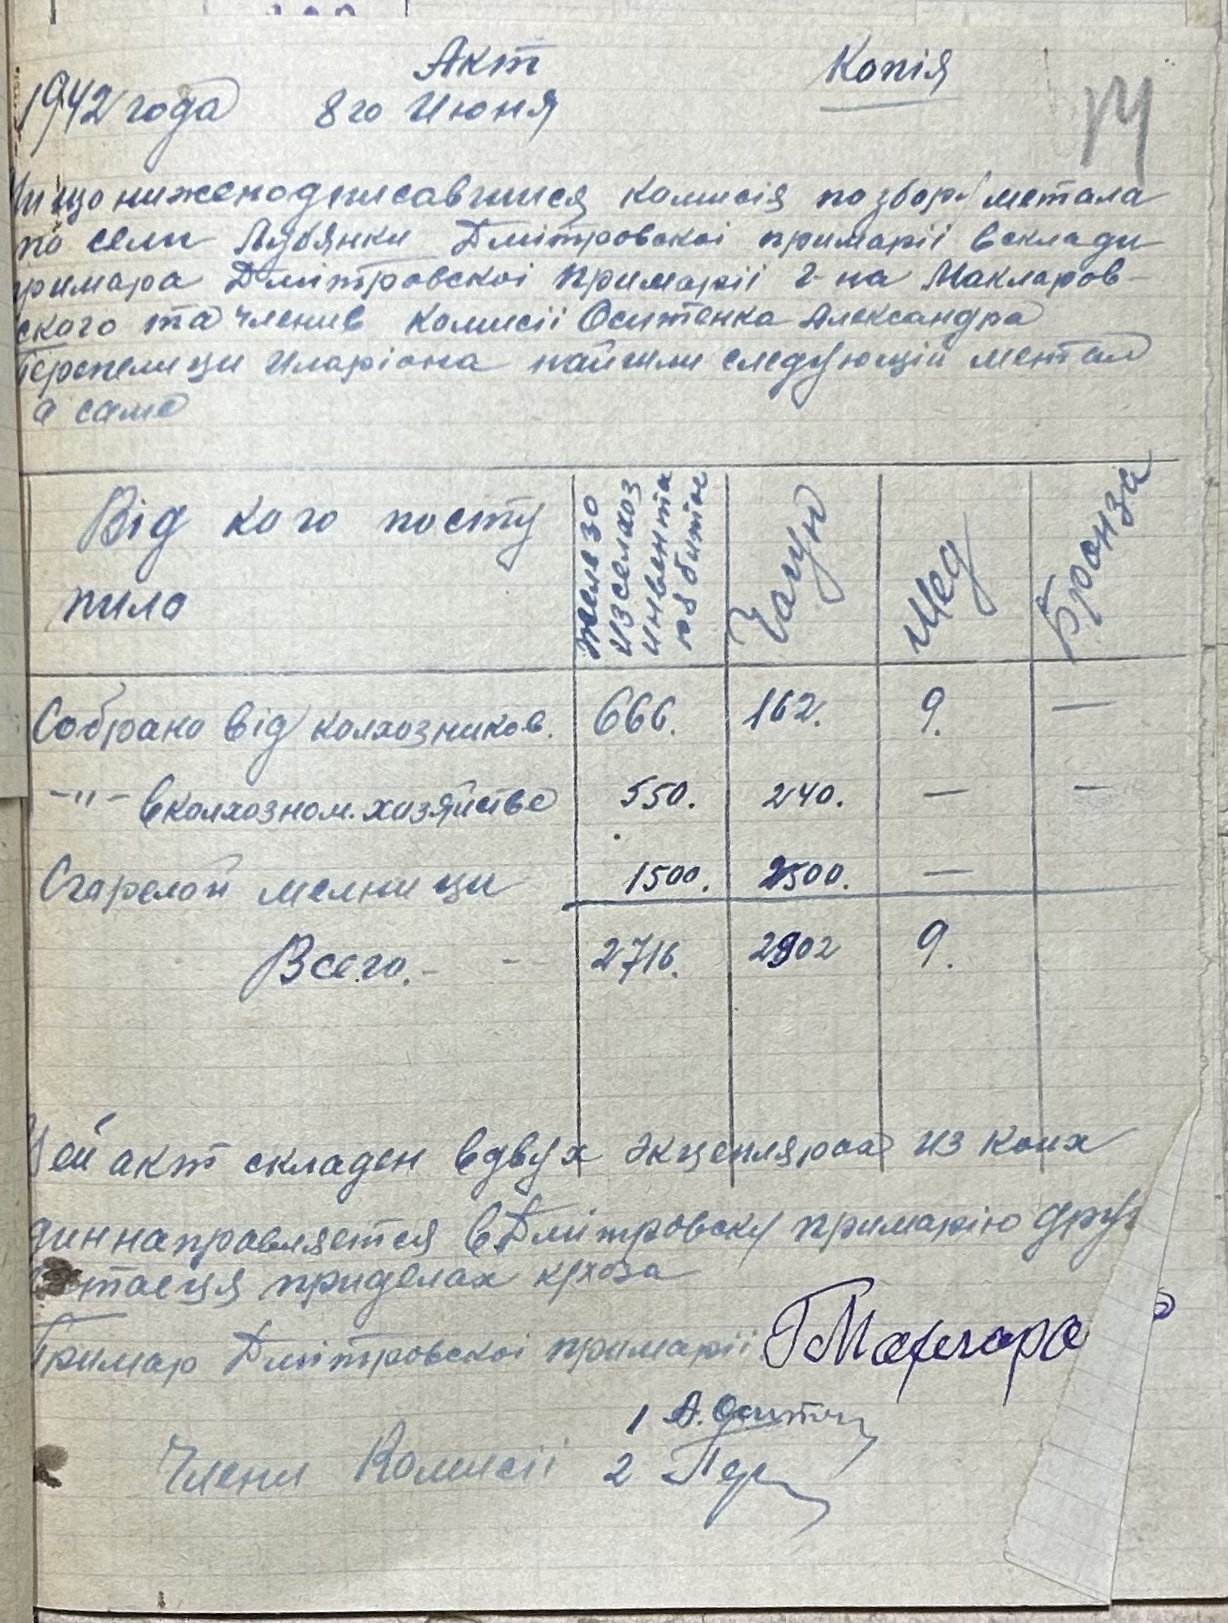 Акт Копія
1942 года 8го Июня
Ми що нижеподписавшися комисія по зборі метала
по сели Лубянки Дмітровскоі примаріі в склади
примара Дмітровскоі примаріі г-на Макларов-
ского та членив комисіі Оситенка Александра
Перепелици Иларіона найшли следующій метал
а саме
Від кого посту
пило
железо
из селхоз
инвента
Чагун
Мед
Бронза
Собрано від колхозников. 666. 162. 9. —
-"- в колхозном. хозяйстве 550. 240. — —
Сгарелой мелници 1500. 2500. —
Всего. - - 2716. 2902 9.
Цей акт складен в двух экцеплярах из коих
дин направляется в Дмітровску примарію друг
стаеця приделах
Примар Дмітровскоі примаріі
1 А. Осит
Члени Комисіі 2 Пер